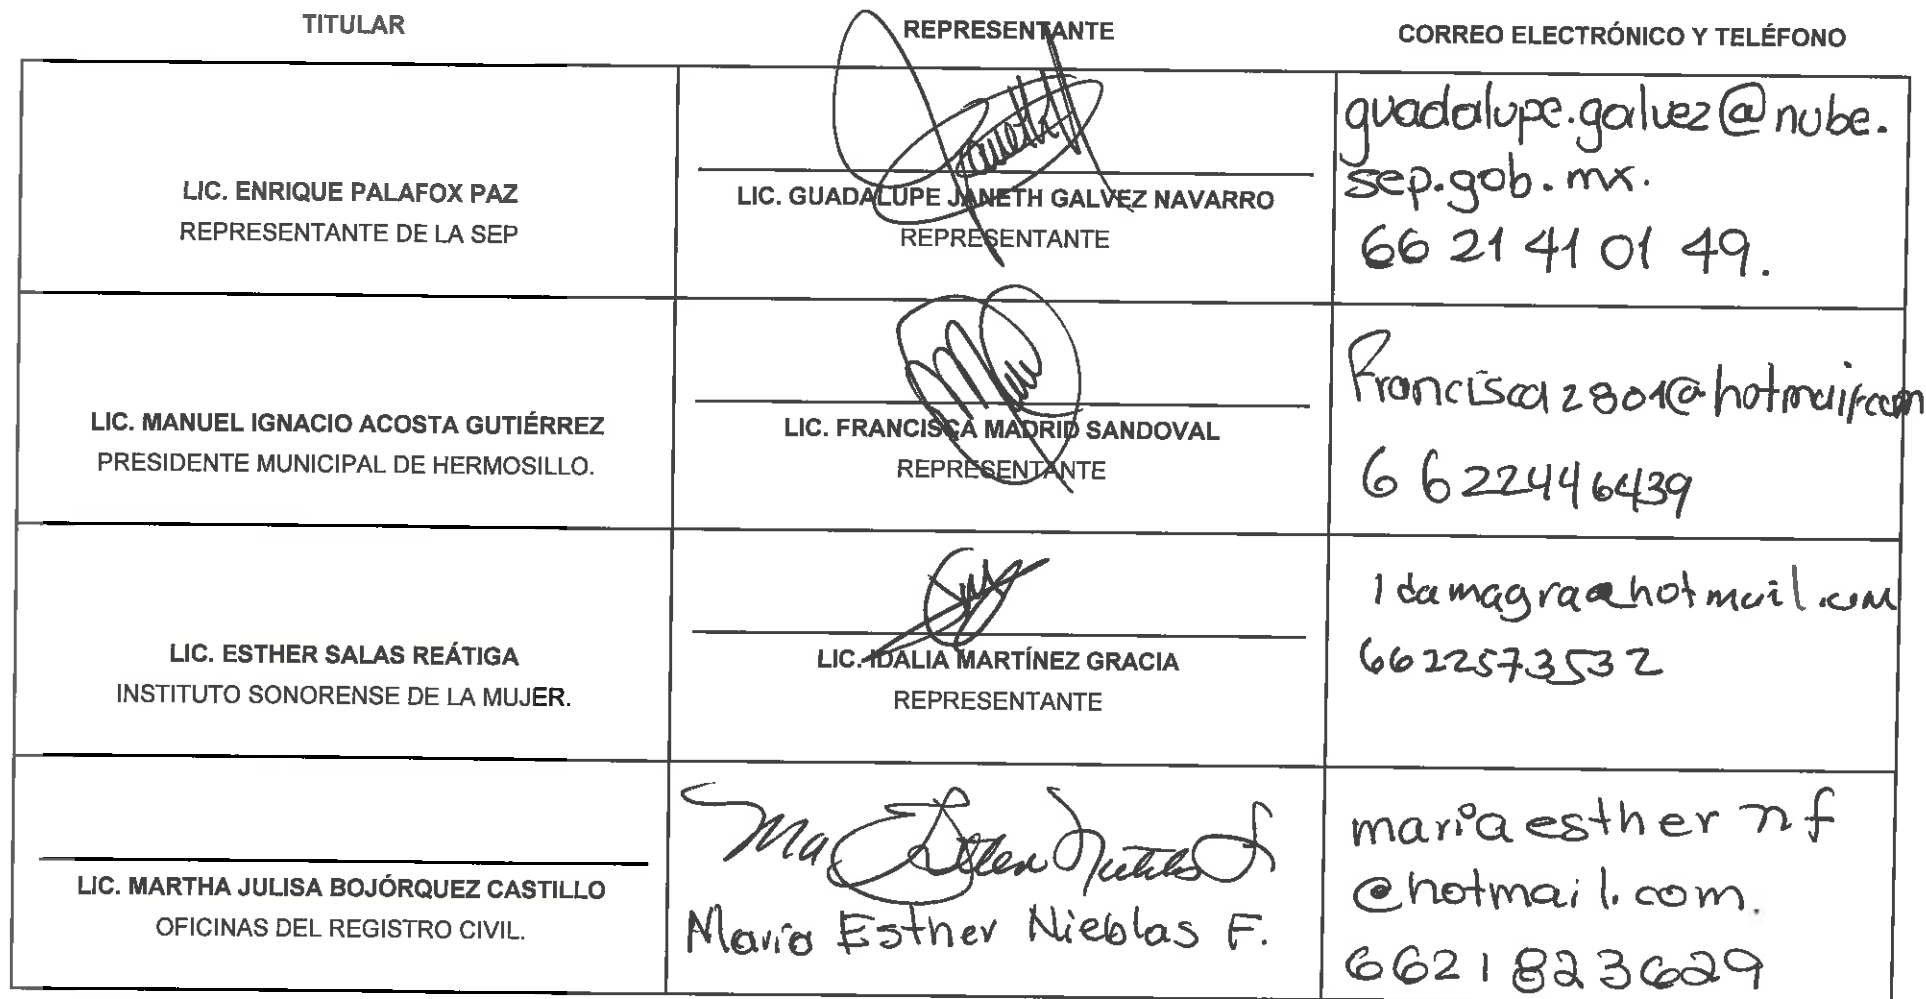 TITULAR
REPRESENTANTE
CORREO ELECTRÓNICO Y TELÉFONO
LIC. ENRIQUE PALAFOX PAZ
REPRESENTANTE DE LA SEP
LIC. GUADALUPE JANETH GALVEZ NAVARRO
REPRESENTANTE
guadalupe.galvez@nube.
sep.gob.mx.
66 21 41 01 49.
LIC. MANUEL IGNACIO ACOSTA GUTIÉRREZ
PRESIDENTE MUNICIPAL DE HERMOSILLO.
LIC. FRANCISCA MADRID SANDOVAL
REPRESENTANTE
Francisca2801@hotmail.com
6622446439
LIC. ESTHER SALAS REÁTIGA
INSTITUTO SONORENSE DE LA MUJER.
LIC. IDALIA MARTÍNEZ GRACIA
REPRESENTANTE
Idamagra@hotmail.com
6622573532
LIC. MARTHA JULISA BOJÓRQUEZ CASTILLO
OFICINAS DEL REGISTRO CIVIL.
Ma Esther Nieblas F
María Esther Nieblas F.
maria esther nf
@hotmail.com.
6621823629